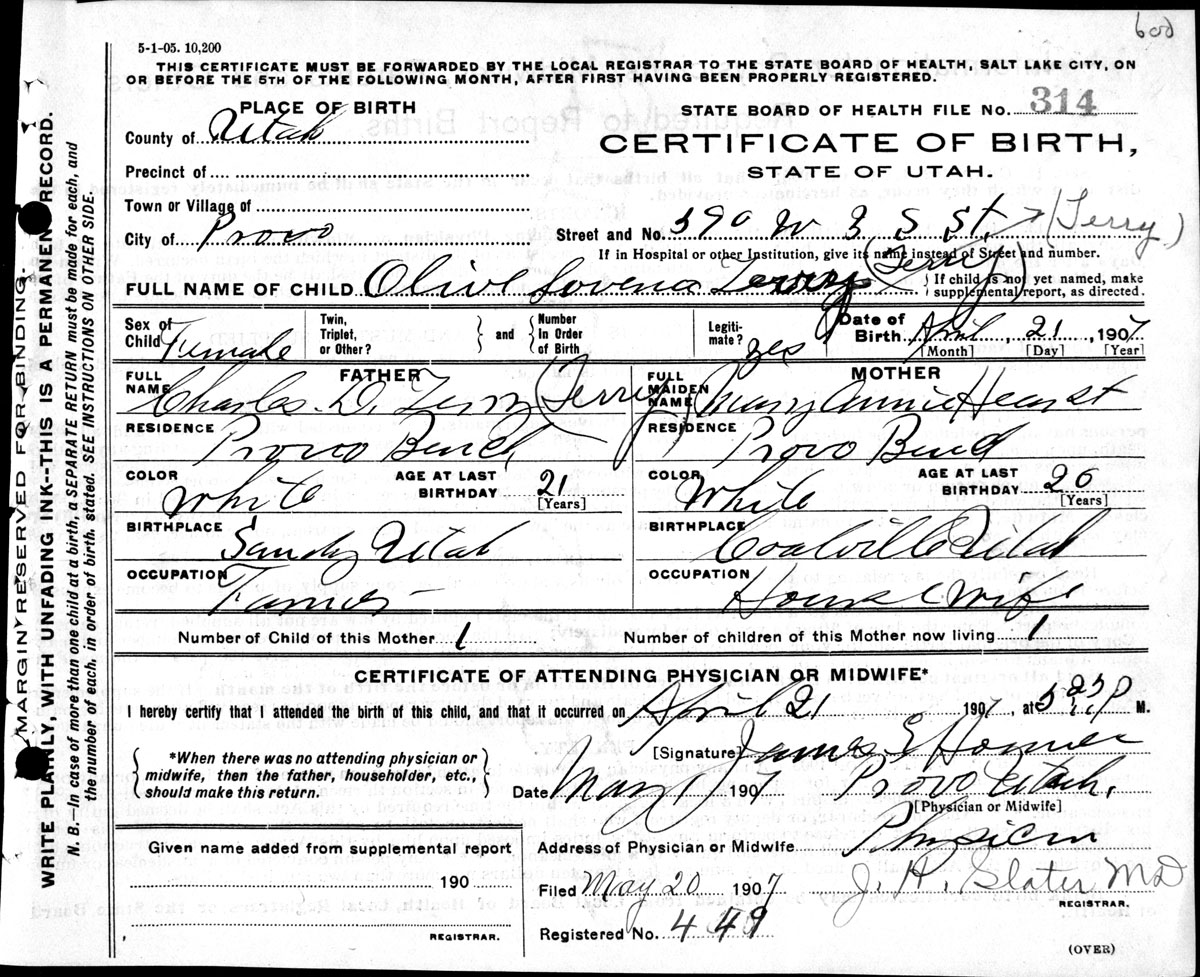 600
5-1-05. 10,200
THIS CERTIFICATE MUST BE FORWARDED BY THE LOCAL REGISTRAR TO THE STATE BOARD OF HEALTH, SALT LAKE CITY, ON
OR BEFORE THE 5TH OF THE FOLLOWING MONTH, AFTER FIRST HAVING BEEN PROPERLY REGISTERED.
PLACE OF BIRTH
STATE BOARD OF HEALTH FILE No. 314
County of Utah
CERTIFICATE OF BIRTH,
STATE OF UTAH.
Precinct of
Town or Village of
City of Provo
Street and No. 390 W 3 S St. (Terry)
If in Hospital or other Institution, give its name instead of Street and number.
FULL NAME OF CHILD Olive Lovena Terry (Terry) { If child is not yet named, make
supplemental report, as directed.
Sex of Child Female
Twin, Triplet, or Other? } and { Number In Order of Birth
Legiti- mate? yes
Date of Birth April 21, 1907
[Month] [Day] [Year]
FATHER
FULL NAME Charles D. Terry (Terry)
MOTHER
FULL MAIDEN NAME Mary Annie Hearst
RESIDENCE Provo Bench
RESIDENCE Provo Bench
COLOR White AGE AT LAST BIRTHDAY 21 [Years]
COLOR White AGE AT LAST BIRTHDAY 20 [Years]
BIRTHPLACE Sandy Utah
BIRTHPLACE Coalville Utah
OCCUPATION Farmer
OCCUPATION House Wife
Number of Child of this Mother 1
Number of children of this Mother now living 1
CERTIFICATE OF ATTENDING PHYSICIAN OR MIDWIFE*
I hereby certify that I attended the birth of this child, and that it occurred on April 21 1907, at P M.
*When there was no attending physician or
midwife, then the father, householder, etc.,
should make this return.
[Signature] James E Homer
Date May 1 1907 Provo Utah,
[Physician or Midwife]
Given name added from supplemental report
Address of Physician or Midwife Physician
190
Filed May 20 1907 J. H. Slater MD
REGISTRAR.
REGISTRAR.
Registered No. 449
(OVER)
MARGIN RESERVED FOR BINDING.
WRITE PLAINLY, WITH UNFADING INK--THIS IS A PERMANENT RECORD.
N. B.—In case of more than one child at a birth, a SEPARATE RETURN must be made for each, and
the number of each, in order of birth, stated. SEE INSTRUCTIONS ON OTHER SIDE.